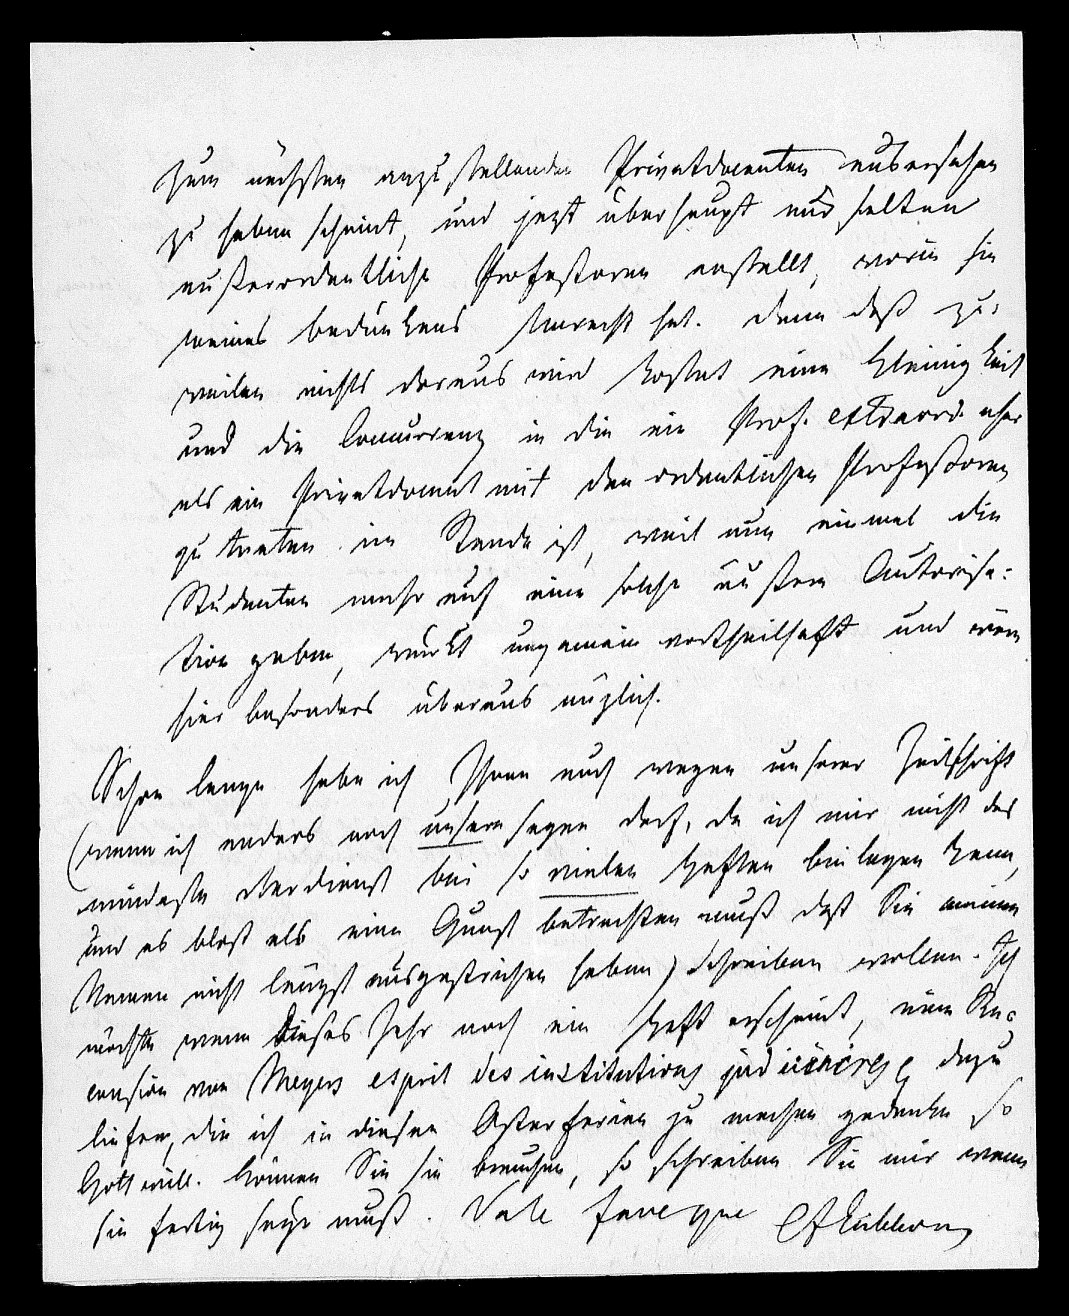 zum nächsten anzustellenden Privatdocenten ausersehen
zu haben scheint, und jezt überhaupt nur selten
außerordentliche Professoren anstellt, worin sie
meines bedünkens Unrecht hat. denn daß zu-
weilen nichts daraus wird kostet eine Kleinigkeit
und die Concurrenz in die ein Prof. extraord. eher
als ein Privatdocent mit den ordentlichen Professoren
zu treten im Stande ist, weil nun einmal die
Studenten mehr auf eine solche äußere Autorisa-
tion geben, wirkt ungemein vortheilhaft und wäre
hier besonders überaus nüzlich.
Schon lange habe ich Ihnen auch wegen unserer Zeitschrift
(wenn ich anders noch unsere sagen darf, da ich mir nicht das
mindeste Verdienst bei so vielen Heften beilegen kann,
und es blost als eine Gunst betrachten muß daß Sie meinen
Namen nicht längst ausgestrichen haben) schreiben wollen. Ich
möchte wenn dieses Jahr noch ein Heft erscheint, eine Re-
cension von Meyers esprit des institutions judiciaires dazu
liefern, die ich in diesen Osterferien zu machen gedenke so
Gott will. Können Sie sie brauchen, so schreiben Sie mir wenn
sie fertig seyn muß. Vale faveque CFEichhorn